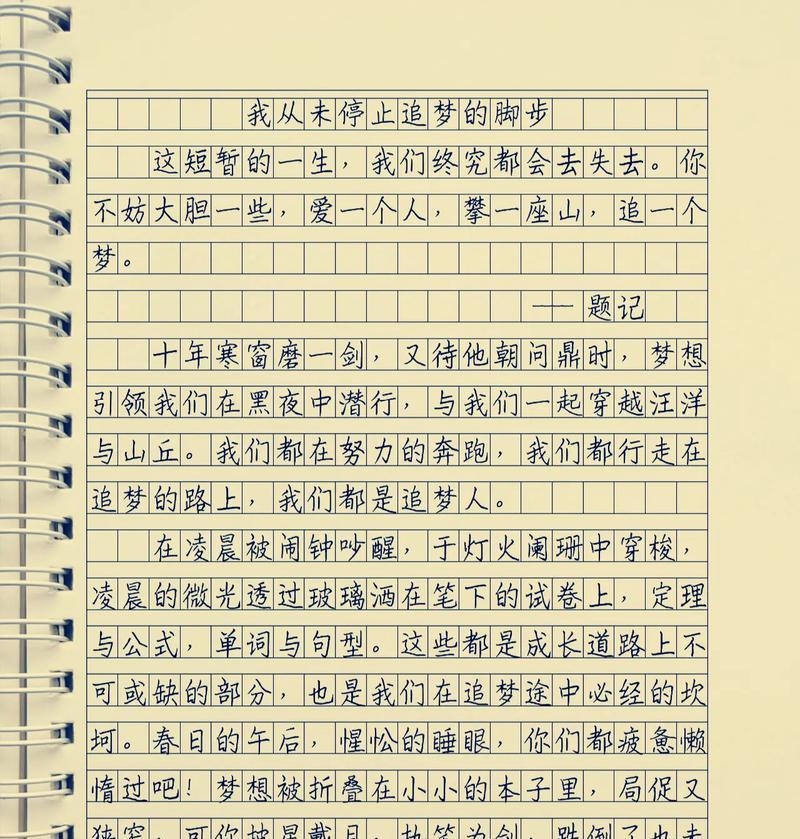 我从未停止追梦的脚步
这短暂的一生，我们终究都会去失去。你
不妨大胆一些，爱一个人，攀一座山，追一个
梦。
—— 题记
十年寒窗磨一剑，又待他朝问鼎时，梦想
引领我们在黑夜中潜行，与我们一起穿越汪洋
与山丘。我们都在努力的奔跑，我们都行走在
追梦的路上，我们都是追梦人。
在凌晨被闹钟吵醒，于灯火阑珊中穿梭，
凌晨的微光透过玻璃洒在笔下的试卷上，定理
与公式，单词与句型。这些都是成长道路上不
可或缺的部分，也是我们在追梦途中必经的坎
坷。春日的午后，惺忪的睡眼，你们都疲惫懒
惰过吧！梦想被折叠在小小的本子里，局促又
狭窄，可你披星戴月，执笔为剑，跌倒了也未